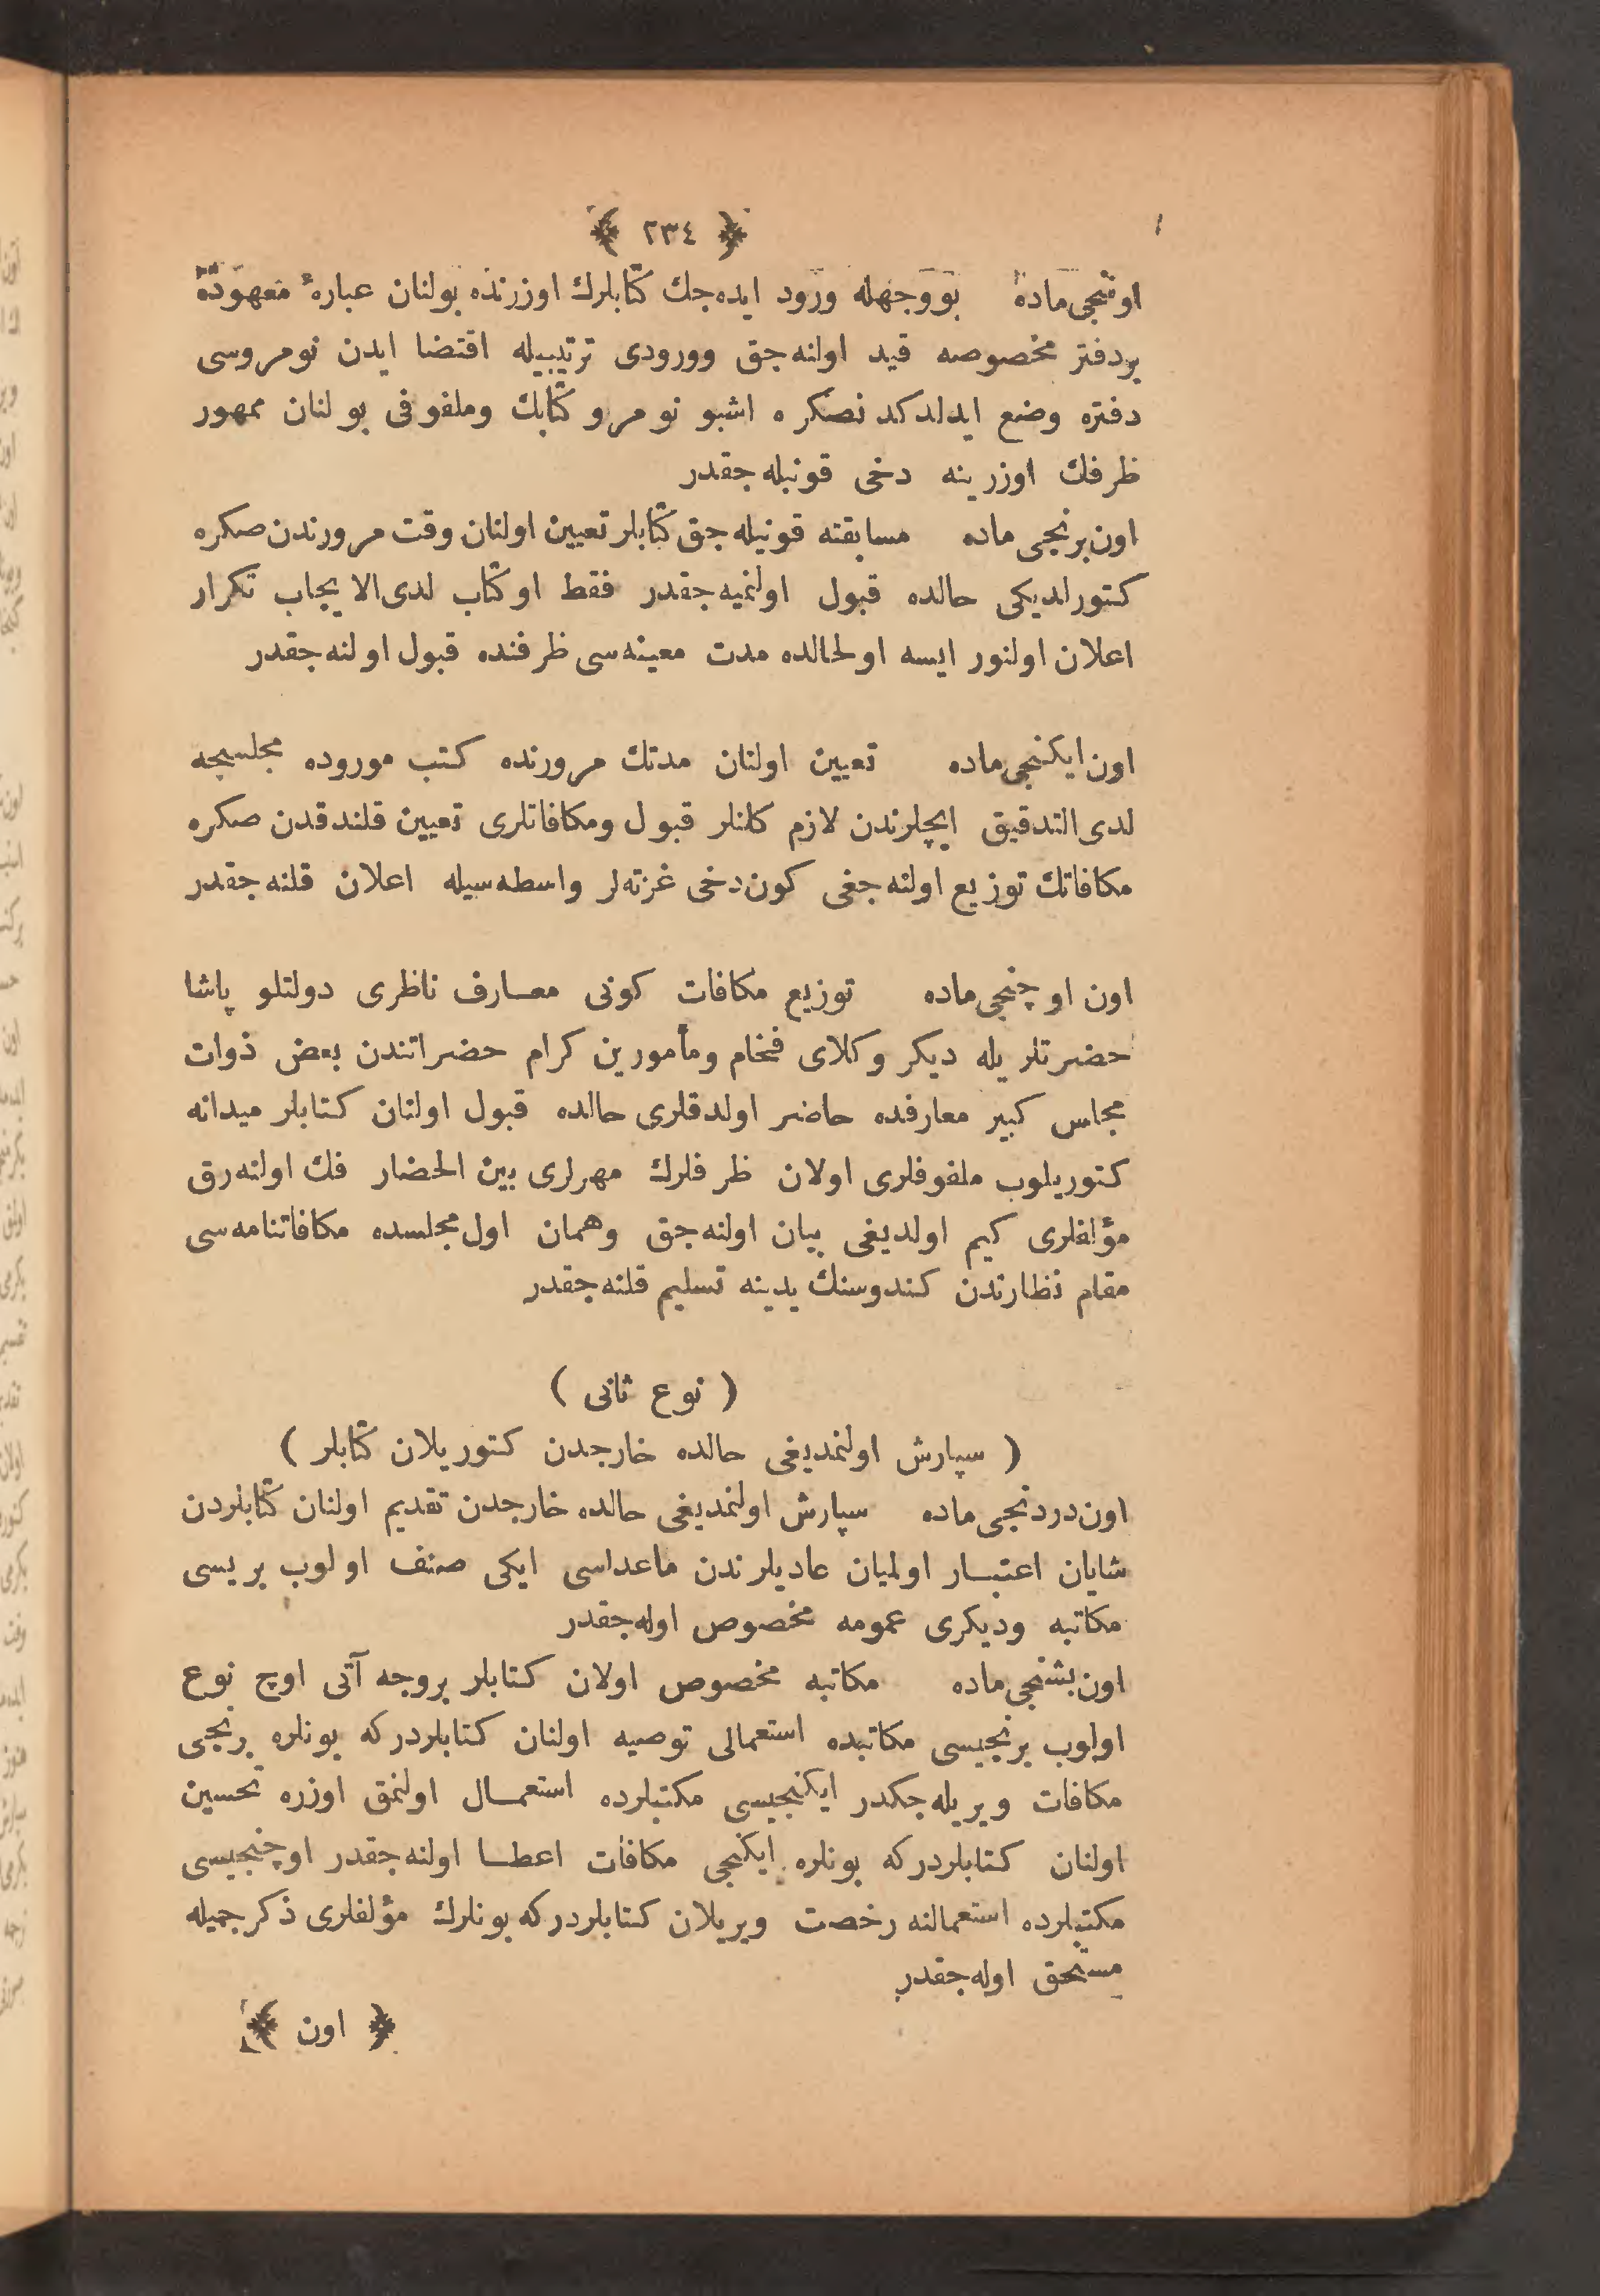 ﴿ ٢٣٤ ﴾
اوننجی ماده بووجهله ورود ایده جك كتابلرك اوزرنده بولنان عبارۀ معهوده
بردفتر مخصوصه قید اولنه جق وورودی ترتیبیله اقتضا ایدن نومروسی
دفتره وضع ایدلدكدنصكره اشبو نومرو كتابك وملفوفی بولنان ممهور
ظرفك اوزرینه دخی قونیله جقدر
اون برنجی ماده مسابقته قونیله جق كتابلر تعیین اولنان وقت مرورندن صكره
كتورلدیكی حالده قبول اولنمیه جقدر فقط اوكتاب لدی الایجاب تكرار
اعلان اولنور ایسه اولحالده مدت معینه سی ظرفنده قبول اولنه جقدر
اون ایكنجی ماده تعیین اولنان مدتك مرورنده كتب موروده مجلسجه
لدی التدقیق ایچلرندن لازم كلنلر قبول ومكافاتلری تعیین قلندقدن صكره
مكافاتك توزیع اولنه جغی كون دخی غزته لر واسطه سیله اعلان قلنه جقدر
اون اوچنجی ماده توزیع مكافات كونی معارف ناظری دولتلو پاشا
حضرتلریله دیكر وكلای فخام ومأمورین كرام حضراتندن بعض ذوات
مجلس كبیر معارفده حاضر اولدقلری حالده قبول اولنان كتابلر میدانه
كتوریلوب ملفوفلری اولان ظرفلرك مهرلری بین الحضار فك اولنه رق
مؤلفلری كیم اولدیغی بیان اولنه جق وهمان اول مجلسده مكافاتنامه سی
مقام نظارتدن كندوسنك یدینه تسلیم قلنه جقدر
( نوع ثانی )
( سپارش اولنمدیغی حالده خارجدن كتوریلان كتابلر )
اون دردنجی ماده سپارش اولنمدیغی حالده خارجدن تقدیم اولنان كتابلردن
شایان اعتبار اولمیان عادیلرندن ماعداسی ایكی صنف اولوب بریسی
مكاتبه ودیكری عمومه مخصوص اوله جقدر
اون بشنجی ماده مكاتبه مخصوص اولان كتابلر بروجه آتی اوچ نوع
اولوب برنجیسی مكاتبده استعمالی توصیه اولنان كتابلردركه بونلره برنجی
مكافات ویریله جكدر ایكنجیسی مكتبلرده استعمال اولنمق اوزره تحسین
اولنان كتابلردركه بونلره ایكنجی مكافات اعطا اولنه جقدر اوچنجیسی
مكتبلرده استعمالنه رخصت ویریلان كتابلردركه بونلرك مؤلفلری ذكر جمیله
مستحق اوله جقدر
﴿ اون ﴾